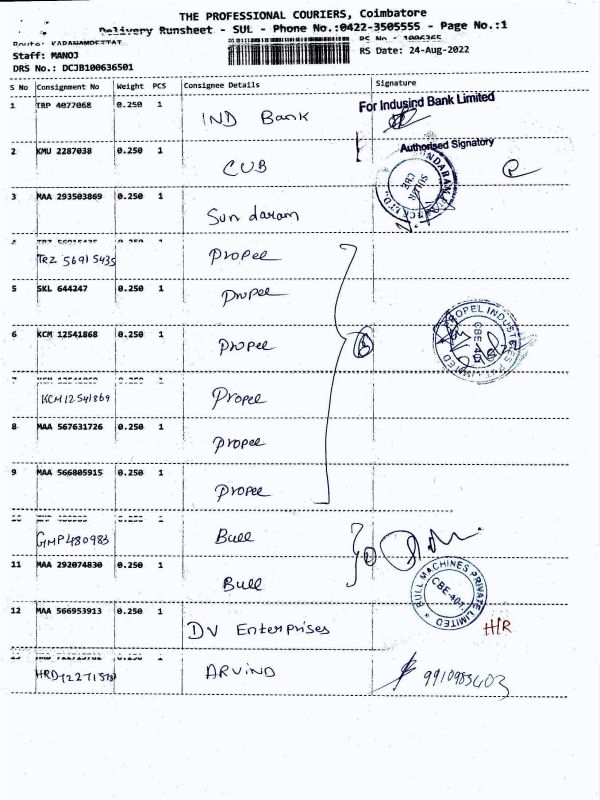 THE PROFESSIONAL COURIERS, Coimbatore
Delivery Runsheet - SUL - Phone No.:0422-3505555 - Page No.:1
RS No. : 1006365
Staff: MANOJ
RS Date: 24-Aug-2022
DRS No.: DCJB100636501
S No Consignment No Weight PCS Consignee Details Signature
1 TRP 4077068 0.250 1 IND Bank For Indusind Bank Limited
Authorised Signatory
2 KMU 2287038 0.250 1 CUB
3 MAA 293503869 0.250 1 Sundaram
SULUR CBE
4 TRZ 56915435 0.250 1 Propel
TRZ 56915435
5 SKL 644247 0.250 1 Propel
6 KCM 12541868 0.250 1 Propel
PROPEL INDUSTRIES PVT LIMITED
CBE-402
7 1 Propel
KCM12541869
8 MAA 567631726 0.250 1 Propel
9 MAA 566805915 0.250 1 Propel
10 1 Bull
GMP480983
11 MAA 292074830 0.250 1 Bull
BULL MACHINES PRIVATE LIMITED
CBE-401
12 MAA 566953913 0.250 1 DV Enterprises HR
13 1 ARVIND 9910983403